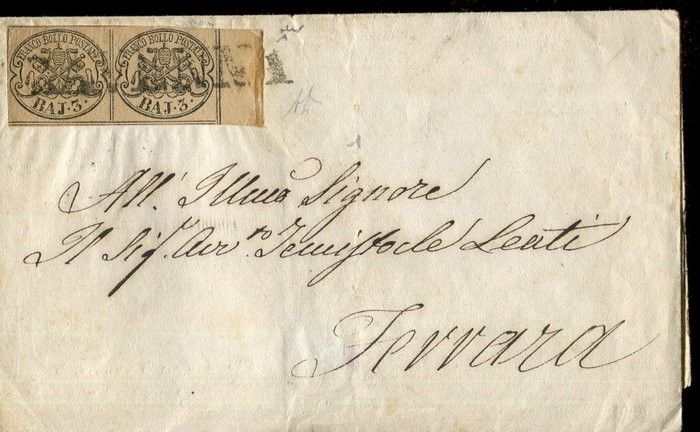 FRANCO BOLLO POSTALE FRANCO BOLLO POSTALE
BAJ. 3. BAJ. 3.
All' Illmo Signore
Il Sig.r Avv.to Temistocle Leati
Ferrara